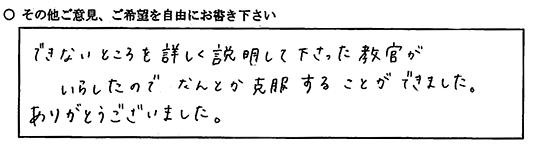 ○ その他ご意見、ご希望を自由にお書き下さい
できないところを詳しく説明して下さった教官が
いらしたので なんとか克服することができました。
ありがとうございました。